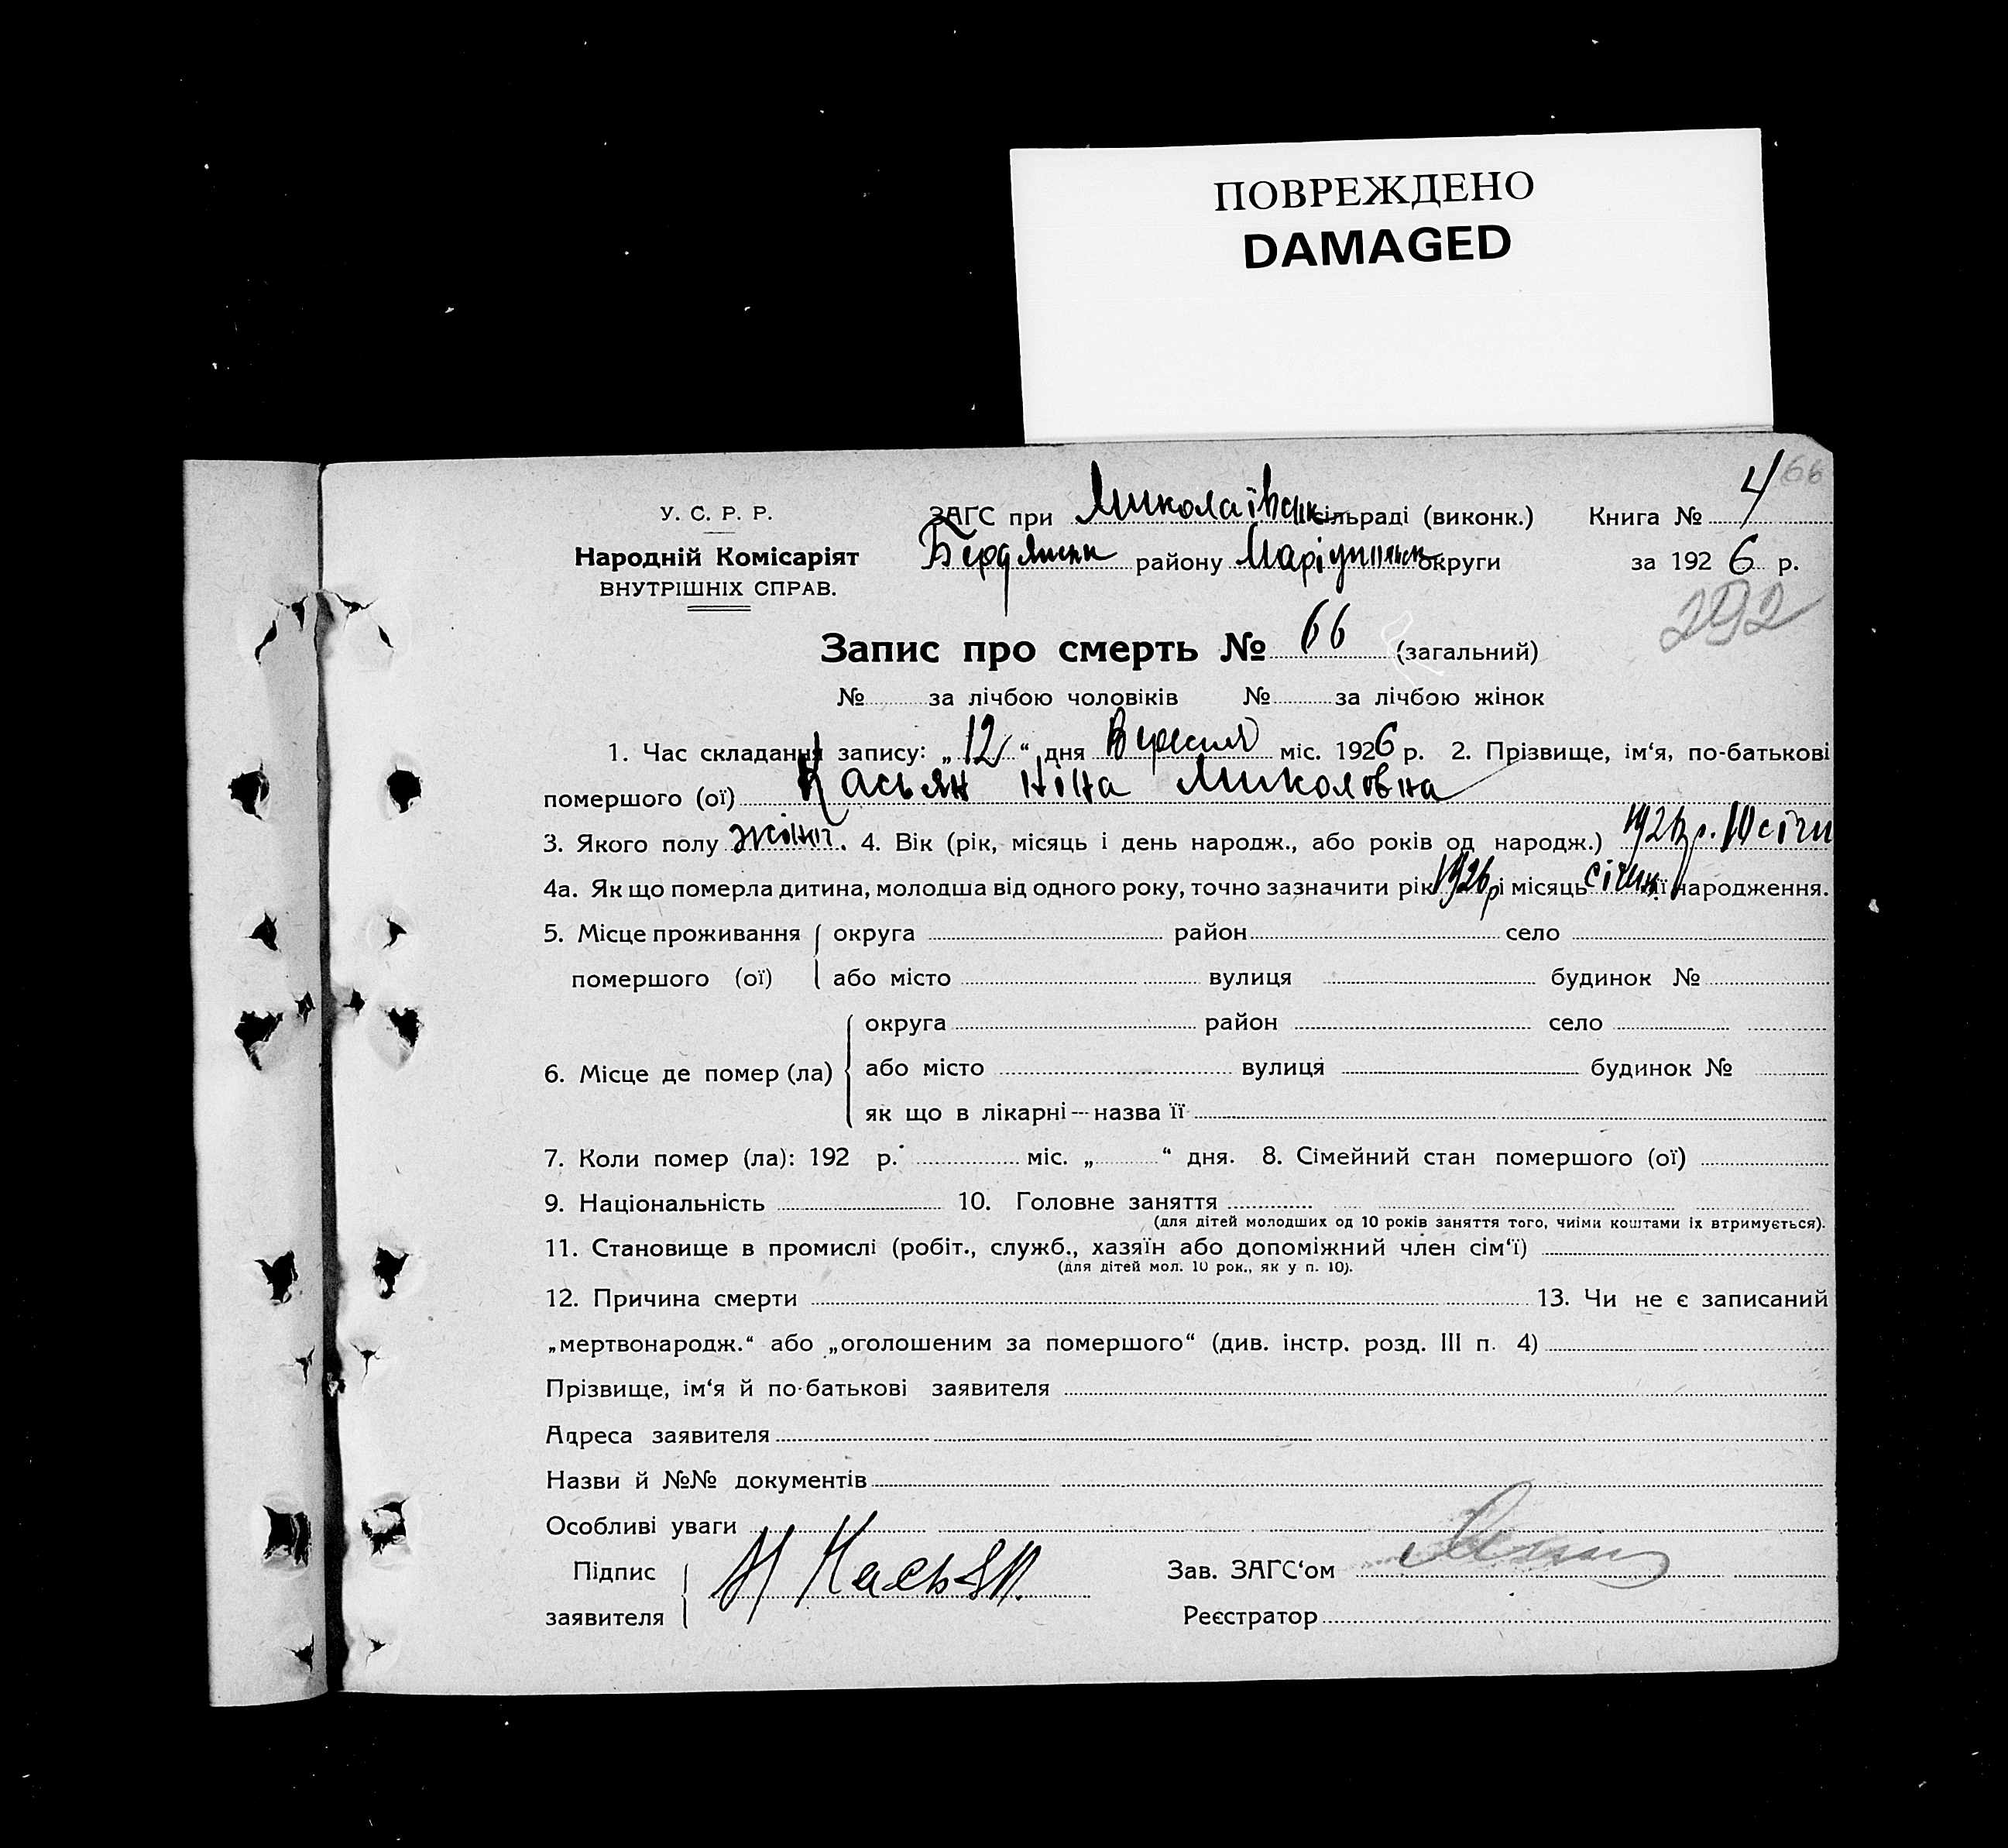 ПОВРЕЖДЕНО
DAMAGED
66
У. С. Р. Р.
Народній Комісаріят
ВНУТРІШНІХ СПРАВ.
ЗАГС при Миколаївськ сільраді (виконк.) Книга № 4
Бердянськ району Маріупільськ округи за 1926 р.
292
Запис про смерть № 66 (загальний)
№ за лічбою чоловіків № за лічбою жінок
1. Час складання запису: „12“ дня Вересня міс. 1926 р. 2. Прізвище, ім‘я, по-батькові
помершого (ої) Касьян Ніна Миколовна
3. Якого полу жіноч. 4. Вік (рік, місяць і день народж., або років од народж.) 1926 р. 10 січн
4а. Як що померла дитина, молодша від одного року, точно зазначити рік 1926 р і місяць січня її народження.
5. Місце проживання округа район село
помершого (ої) або місто вулиця будинок №
округа район село
6. Місце де помер (ла) або місто вулиця будинок №
як що в лікарні—назва її
7. Коли помер (ла): 192 р. міс. „ “ дня. 8. Сімейний стан помершого (ої)
9. Національність 10. Головне заняття
(для дітей молодших од 10 років заняття того, чиїми коштами їх втримується).
11. Становище в промислі (робіт., служб., хазяїн або допоміжний член сім‘ї)
(для дітей мол. 10 рок., як у п. 10).
12. Причина смерти 13. Чи не є записаний
„мертвонародж.“ або „оголошеним за помершого“ (див. інстр. розд. III п. 4)
Прізвище, ім‘я й по-батькові заявителя
Адреса заявителя
Назви й №№ документів
Особливі уваги
Підпис
заявителя Н Касьян
Зав. ЗАГС‘ом
Реєстратор